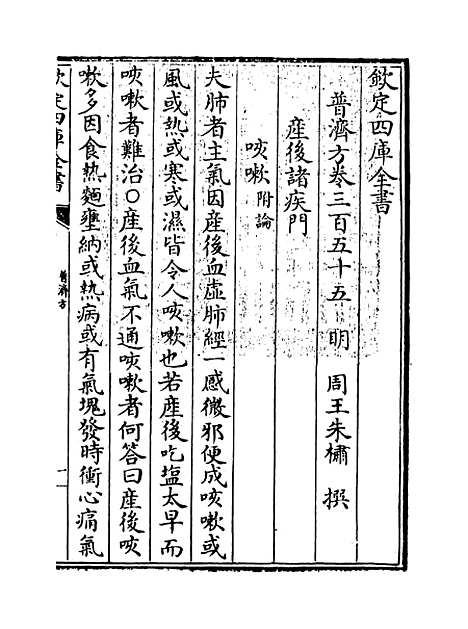 欽定四庫全書
普濟方卷三百五十五 明 周王朱橚 撰
産後諸疾門
咳嗽附論
夫肺者主氣因産後血虛肺經一感微邪便成咳嗽或
風或熱或寒或濕皆令人咳嗽也若産後吃塩太早而
咳嗽者難治○産後血氣不通咳嗽者何答曰産後咳
嗽多因食熱麵壅納或熱病或有氣塊發時衝心痛氣
欽定四庫全書
普濟方
一